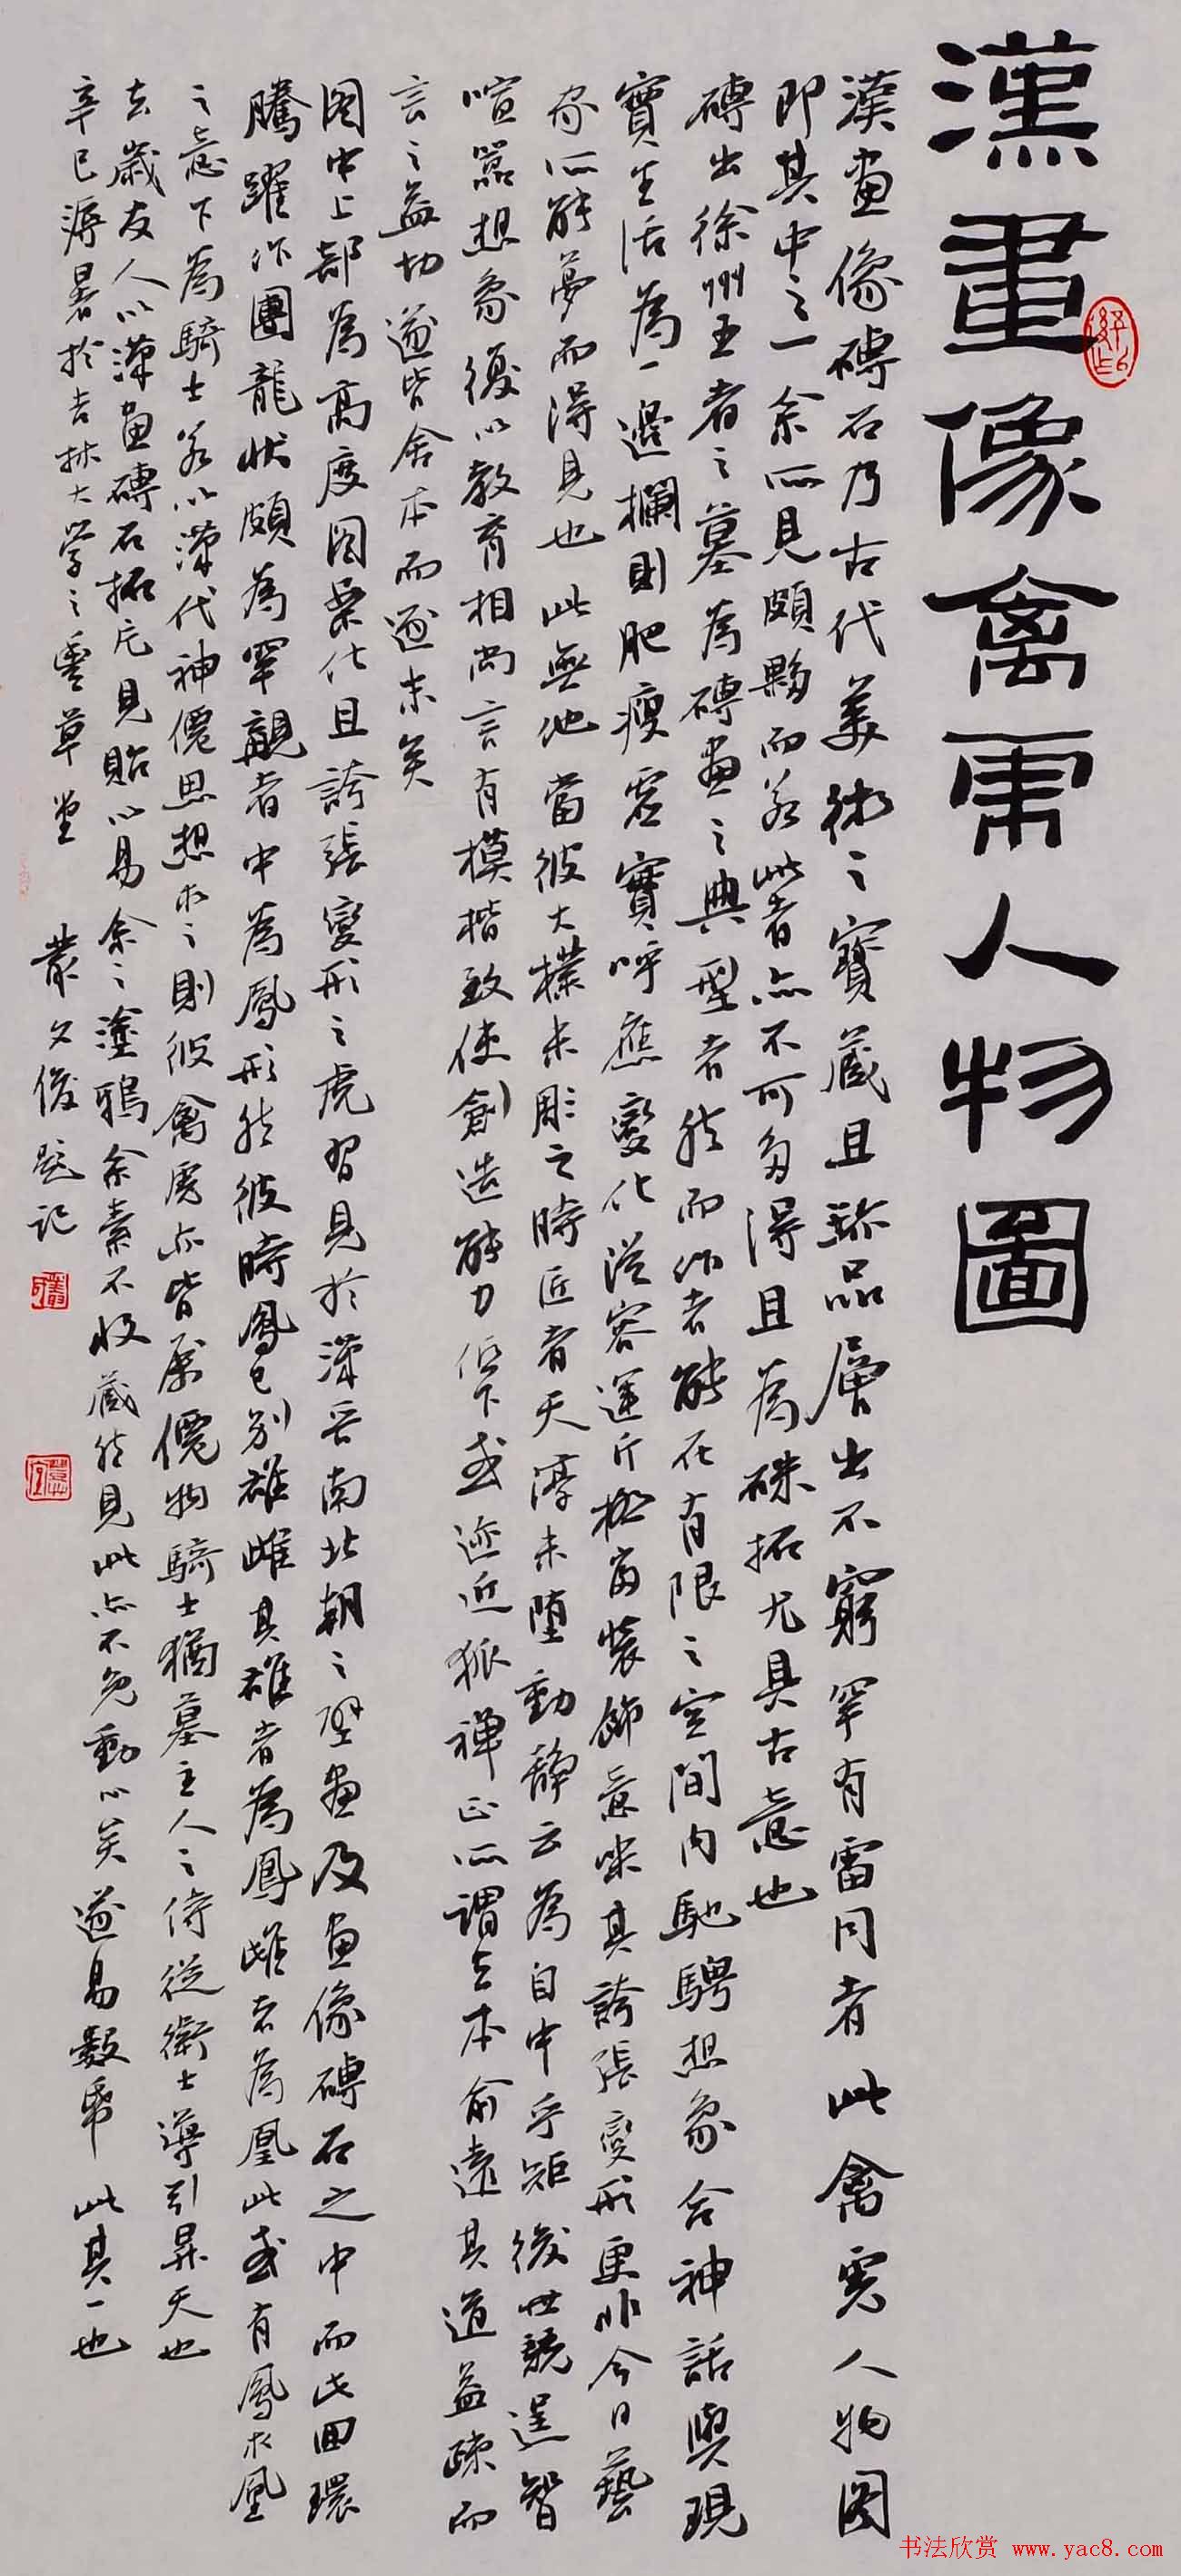 漢畫像禽虎人物圖
漢畫像磚石乃古代美術之寶藏且珎品層出不窮罕有雷同者此禽虎人物图
即其中之一余所見頗夥而若此者亦不可多得且為硃拓尤具古意也
磚出徐州王者之墓為磚畫之典型者然而作者能在有限之空間内馳騁想象合神話與現
實生活為一邊欄則肥瘦宏實呼應變化從容運斤极富裝飾意味其誇張變形更非今日藝
家所能夢而得見也此無他當彼大樸未彫之時匠者天淳未墮動靜云為自中乎矩後世競逞智
喧囂想象復以教育相尚言有模楷致使創造能力低下或迹近狐禅正所謂去本俞遠其道益疎而
言之益切遂皆舍本而逐末矣
图中上部為高度图案化且誇張變形之虎習見於漢晋南北朝之壁畫及畫像磚石之中而此回環
騰躍作團龍狀頗為罕覯者中為鳳形然彼時鳳已别雄雌其雄者為鳳雌者為凰此或有鳳求凰
之意下為騎士若以漢代神僊思想求之則彼禽虎亦皆屬僊物騎士猶墓主人之侍從衛士導引昇天也
去歲友人以漢畫磚石拓片見貽以易余之塗鴉余素不收藏然見此亦不免動心矣遂易數帋此其一也
辛巳溽暑於吉林大學之雲草堂 叢文俊題記
书法欣赏 www.yac8.com